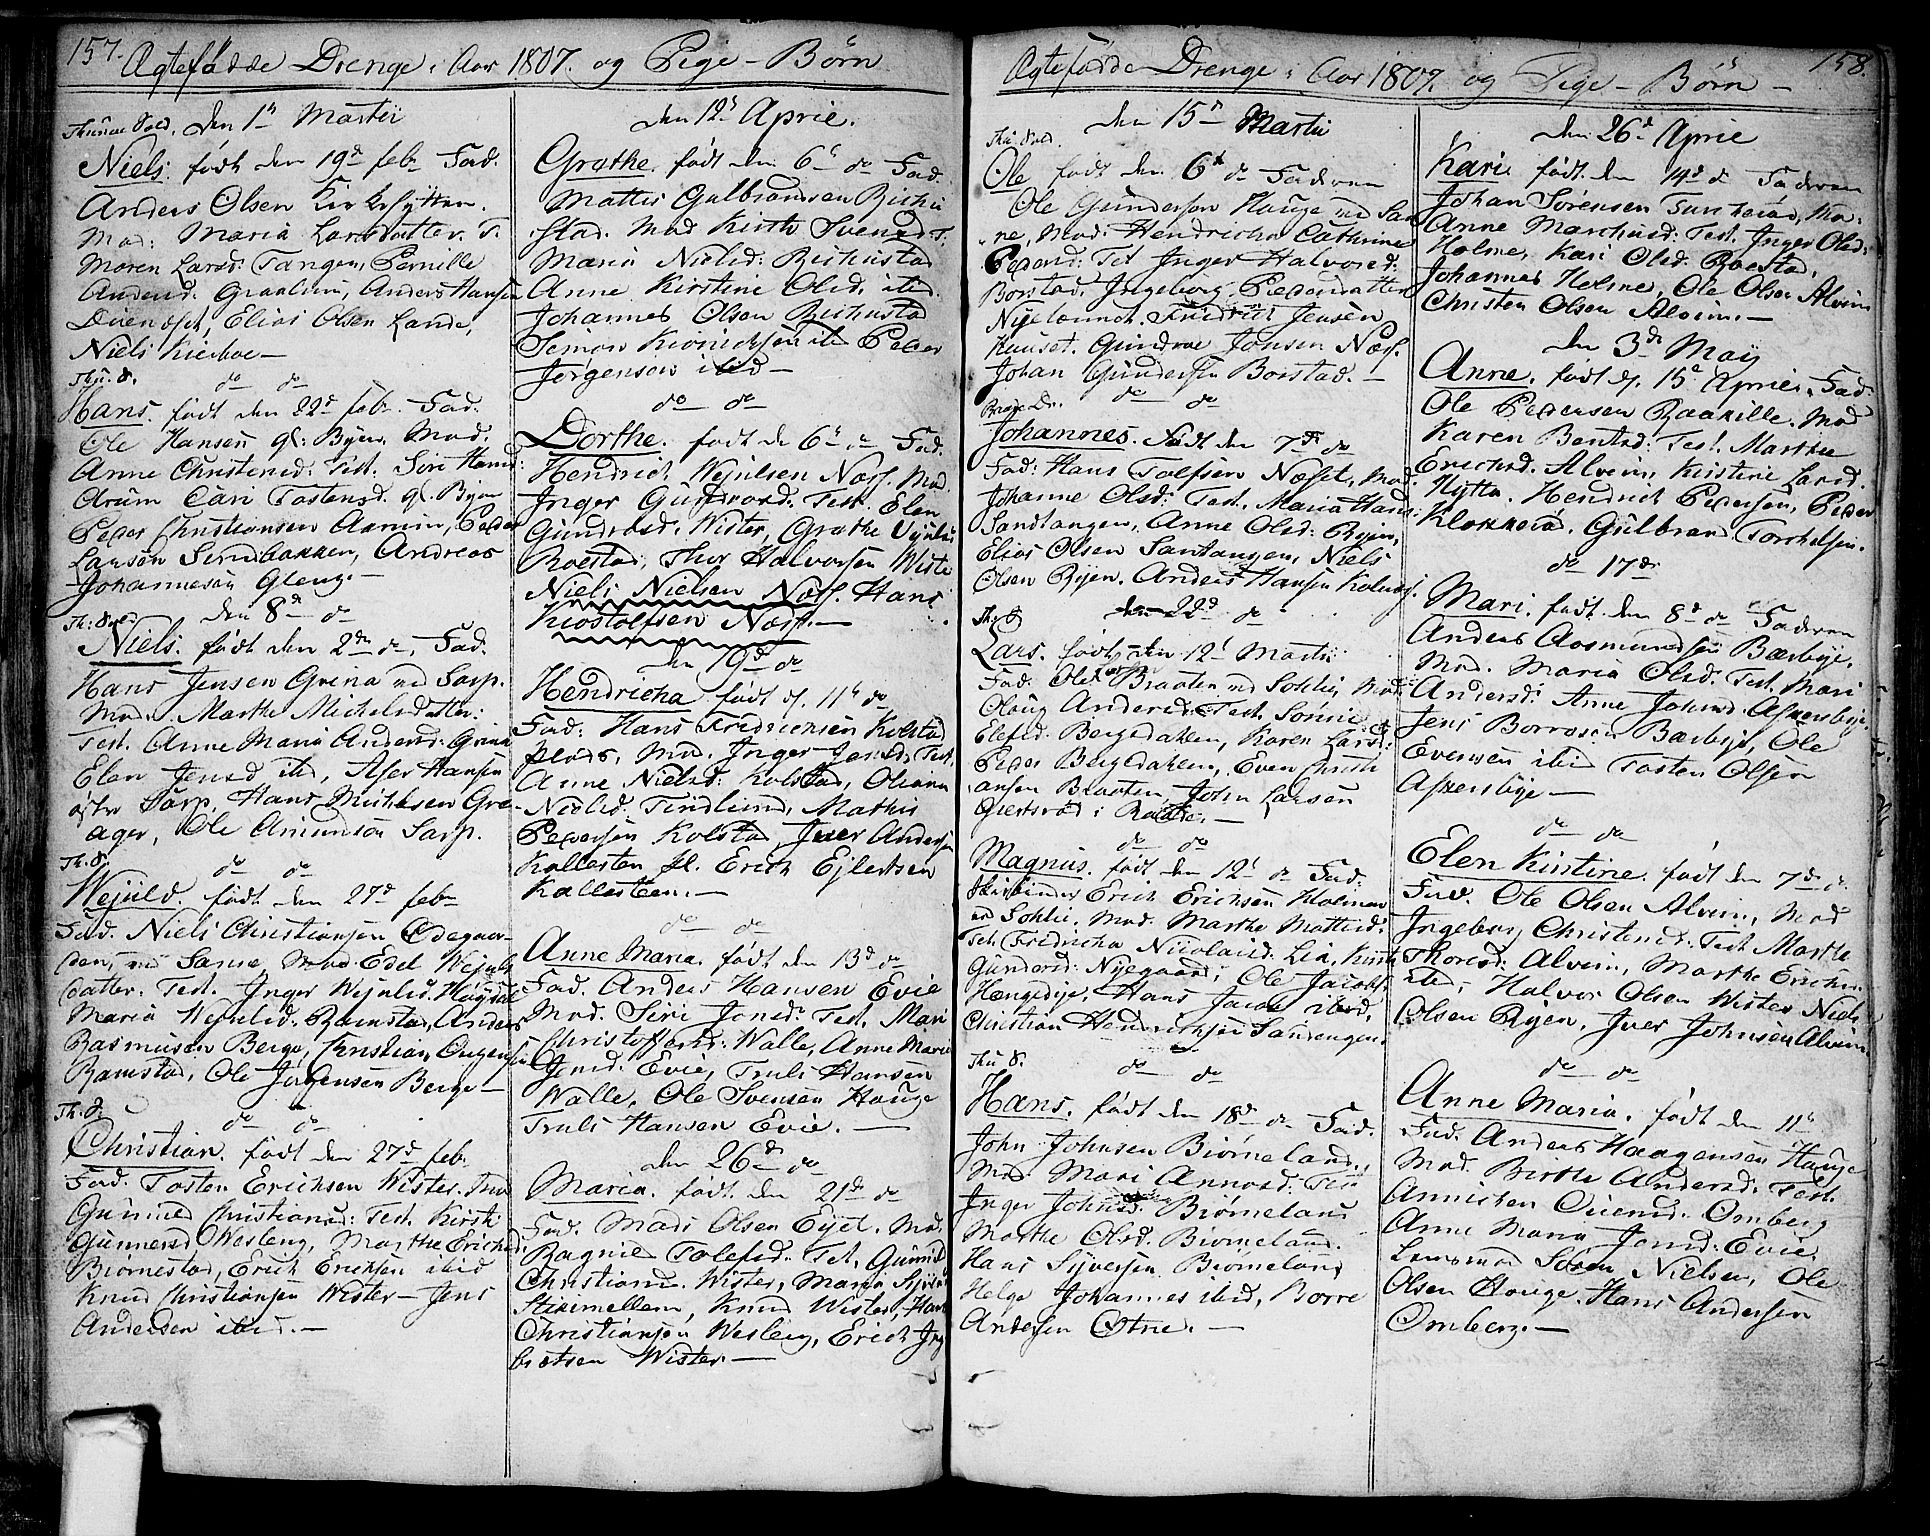 157. Ægtefødde Drenge i Aar 1807. og Pige-Børn
Thune Sold. Den 1n Martii
Niels. født den 19d febr. Fad.
Anders Olsen Kirkesytten.
Mod: Maria Larsdatter. T.
Maren Larsd: Tangen, Pernille
Andersd. Graalum, Anders Hansen
Elias Olsen Lande,
Niels Kierboe —
Thu. S. do do
Hans. født den 22d febr. Fad.
Ole Hansen gl: Byen. Mod.
Anne Christensd: Test. Siri Hansd:
Arum Cari Tostensd. gl. Byen
Peder Christiansen Aamin, Peder
Larsøn Andreas
Johannesøn Gleng. —
Th: Sold den 8d do
Niels. født den 2den do, Fad.
Hans Jensen Grina ved Sarp.
Mod. Marthe Michelsdatter:
Test. Anne Maria Andersd: Grina
Elen Jensd ibd, Aser Hansen
østre Sarp, Hans Michelsen Gre-
ager, Ole Amundsøn Sarp.
Th: S. do do
Wejuld. født den 27d febr
Fad. Niels Christiansen Ødegaar-
den, ved Sanne, Mod Edel Wejuls
datter. Test. Inger Wejulsd. Høysdal
Maria Wejulsd. Ramstad, Anders
Rasmusen Berge, Christian
Ramstad, Ole Jørgensen Berge —
Th. S: do do
Christian. født den 27d febr
Fad. Tosten Erichsen Wister. Mod
Gunnild Christiansd: Test. Kirsti
Gunnersd Wesleng, Marthe Erichsd:
Biørnestad, Erich Erichsen ibid
Knud Christiansen Wister — Jens
Andersen ibid. —
den 12n Aprie.
Grethe. født den 6n do Fad.
Mattis Gulbrandsen Bischu
stad. Mod Kirsti Svensd T.
Maria Nielsd: Bichustad
Anne Kirstine Olsd. ibd.
Johannes Olsen Bichustad
Simon ibd Peder
Jørgensøn ibid —
do do
Dorthe. født de 6n do Fad.
Hendrich Wejulsen Næss. Mod.
Inger Gundrosd: Test. Elen
Gundrosd: Wister, Grethe
Roestad, Thor Halvorsen Wiste
Niels Nielsen Næss. Hans
Kiostolfsen Næss. —
den 19d do
Hendricha født d. 11n do
Fad: Hans Fredricksen Kolstad
plads, Mod. Inger Jensd, Test.
Anne Nielsd: Kolstad, Oliana
Nielsd: Tindlund, Mathis
Pedersen Kolstad, Iver Andersen
Kallesten pl. Erich Ejlertsen
Kallesteen. —
do do
Anne Maria. født den 13d do
Fad. Anders Hansen Evie
Mod. Siri Jonsd: Test. Mari
Christoffersd: Walle, Anne Maria
Jensd: Evie, Truls Hansen
Walle, Ole Svensen Hauge
Truls Hansen Evie. —
den 26de do
Maria. født den 21d do
Fad. Mads Olsen Eyel. Mod.
Ragnil Tolefsd. Test. Gunnil
Christiansd. Wister, Maria
Knud Wister, Hans
Christiansøn Wesleng, Erich Ing
bretsen Wister. —
Ægtefødde Drenge i Aar 1807. og Pige-Børn — 158.
den 15n Martii
Thu. Sold.
Ole født den 6t do Faderen
Ole Gundersøn Hauge ved San
ne, Mod: Hendricha Cathrine
Pedersd: Test Inger Halvorsd:
Borstad, Ingeborg Pedersdatter
Fridrich Jensen
Kuuset. Gundroe Jonsen Næss.
Johan Gundersen Borstad. —
do do
Johannes. Født den 7de do
Fad: Hans Tolfsen Næset, Mod:
Johanne Olsd: Test. Maria Hansd:
Sandtangen, Anne Olsd: Ryen,
Elias Olsen Santangen, Niels
Olsen Ryen. Anders Hansen
Th: S den 22d do
Lars. født den 12t Martii
Fad. Ole Braaten ved Sohlie, Mod:
Oloug Andersd: Test. Sørine
Elefsd: Bergdahlen, Karen Larsd:
Peder Bergdahlen, Even Christi
ansen Braaten John Larsen
Giertsrød i Raade. —
do do
Magnus. født den 12t do Fad:
Skibinder Erich Erichsen Holmen
ved Sohlie. Mod. Marthe Mattisd:
Test. Fridricha Nicolaisd: Lia,
Gundersd: Nyegaard, Ole Jacobs.
Hængedye. Hans Jacob ibid,
Christian Hendrichsen Sandengen
Thu S. do do
Hans. født den 18de do Fad.
John Johnsen Biørneland.
Mod Mari Annosd: Test
Inger Johnsd: Biørneland
Marthe Olsd. Biørneland.
Hans Syversen Biørneland
Helge Johannes ibid, Borre
Andersen Otne. —
den 26d Aprie
Karie født den 14d do Faderen
Johan Sørensen Tuneroed, Mo:
Anne Marchusd: Test. Inger Olsd:
Holme, Kari Olsd: Roestad,
Johannes Holme, Ole Olsen Alvim
Christen Olsen Alvim. —
den 3de May
Anne. født d. 15d Aprie. Fad:
Ole Pedersen Raakille. Mod
Karen Bentsd: Test. Marthe
Erichsd. Alvim, Kirstine Larsd.
Hytta. Hendrich Pedersen, Peder
Klokkerød. Gulbrand Torkelsen.
do 17de
Mari. født den 8d do Faderen
Anders Aasmundsen Bærbye,
Mod. Maria Olsd: Test. Mari
Andersd: Anne Johnsd: Askersbye
Jens Borresen Bærbye, Ole
Evensen ibid Tosten Olsen
Askersbye —
do do
Elen Kistine. født den 7de do.
Fad. Ole Olsen Alvim, Mod
Ingeborg Christensd: Test Marthe
Thoresd: Alvim, Marthe Erichs.
ibd, Halvor Olsen Wister Niels
Olsen Ryen, Iver Johnsen Alvim
do do
Anne Maria. født den 11n
Fad. Anders Haagensen Hauge
Mod. Birthe Andersd. Test.
Annichen Omberg
Anne Maria Jensd: Evie
Lensmand Søren Nielsen, Ole
Olsen Houge. Hans Andersen
Omberg. —